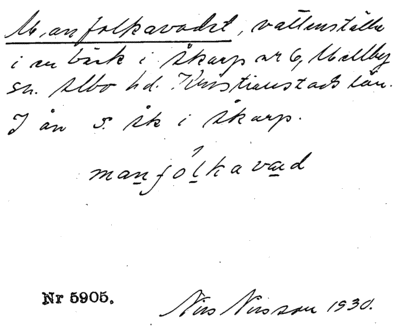 Manfolkavadet, vattenställe
i en bäck i Skarp nr 6, Mellby
sn. Albo hd. Kristianstads län.
I ån s. åk i Skarp.
manfólkavad
Nr 5905.
Nils Nilsson 1930.